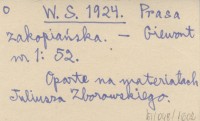 o W. S. 1924. Prasa
zakopiańska. – Giewont
nr 1: 52.
Oparte na materiałach
Juliusza Zborowskiego.